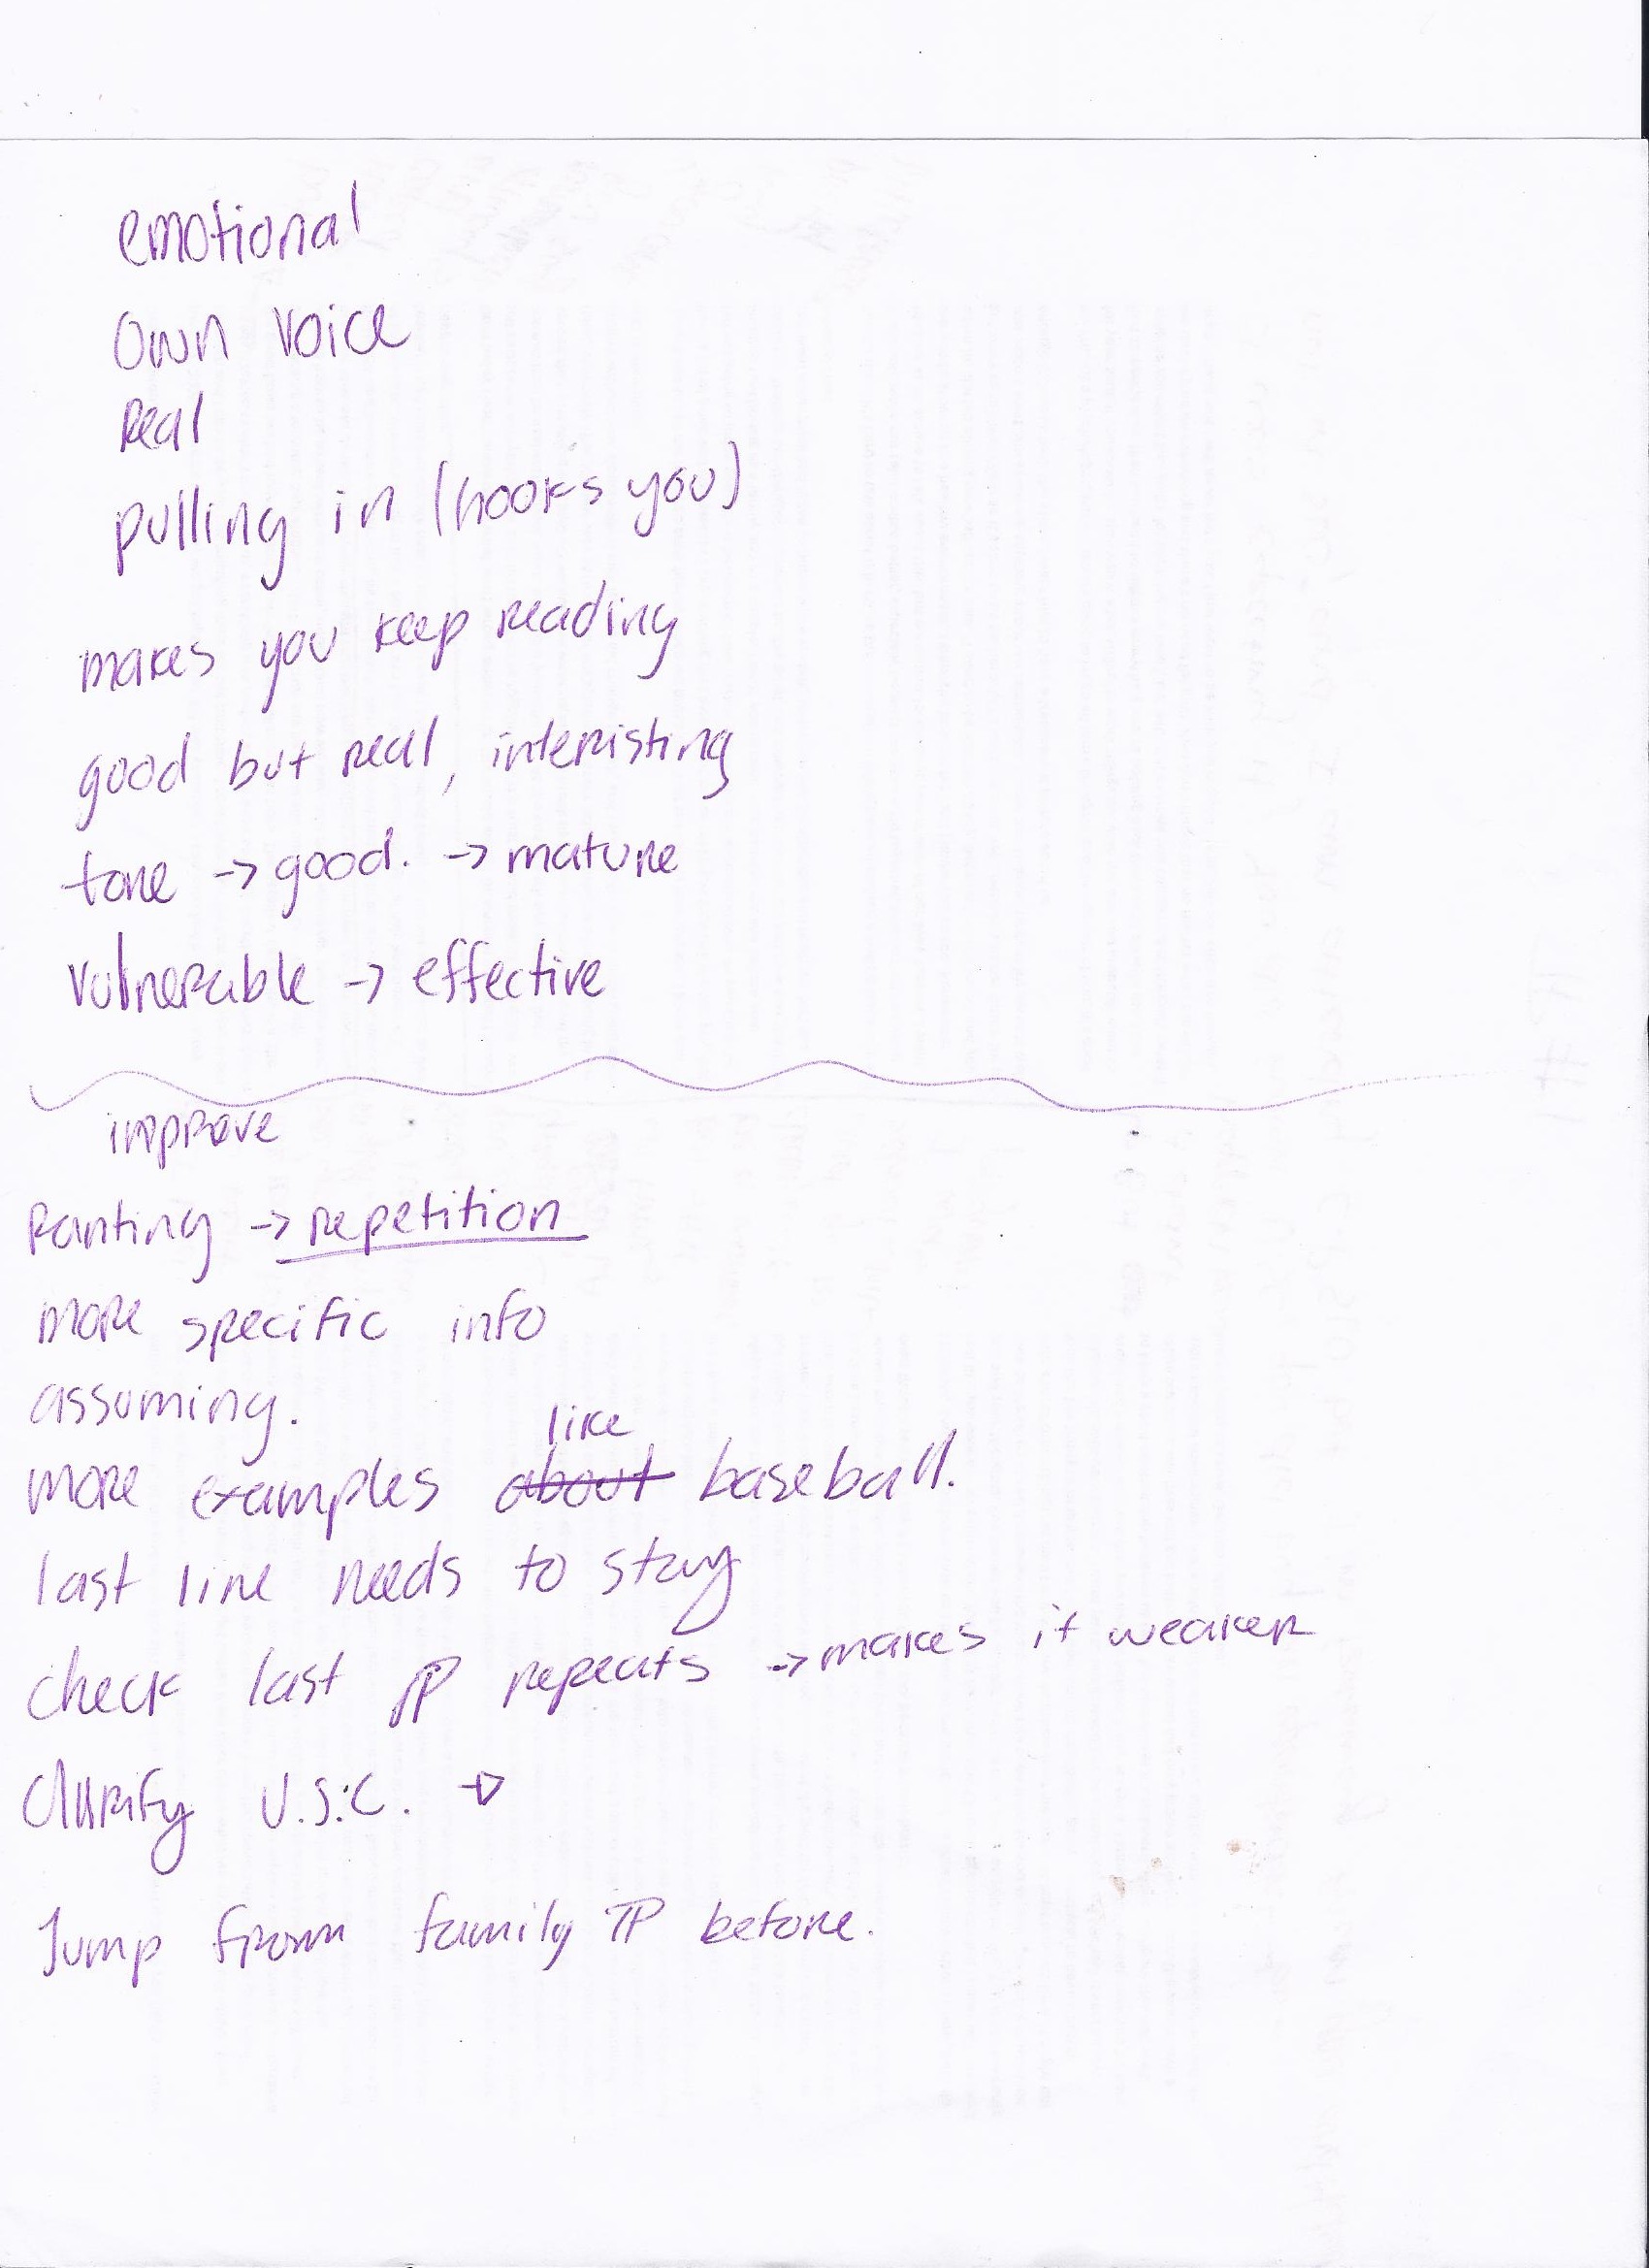 emotional
Own voice
Real
pulling in (hooks you)
makes you keep reading
good but real, interisting
tone → good. → mature
Vulnerable → effective
improve
Ranting → repetition
more specific info
assuming.
like
more examples about baseball.
last line needs to stay
check last ¶ repeats → makes it weaker
Clarify U.S.C. →
Jump from family ¶ before.